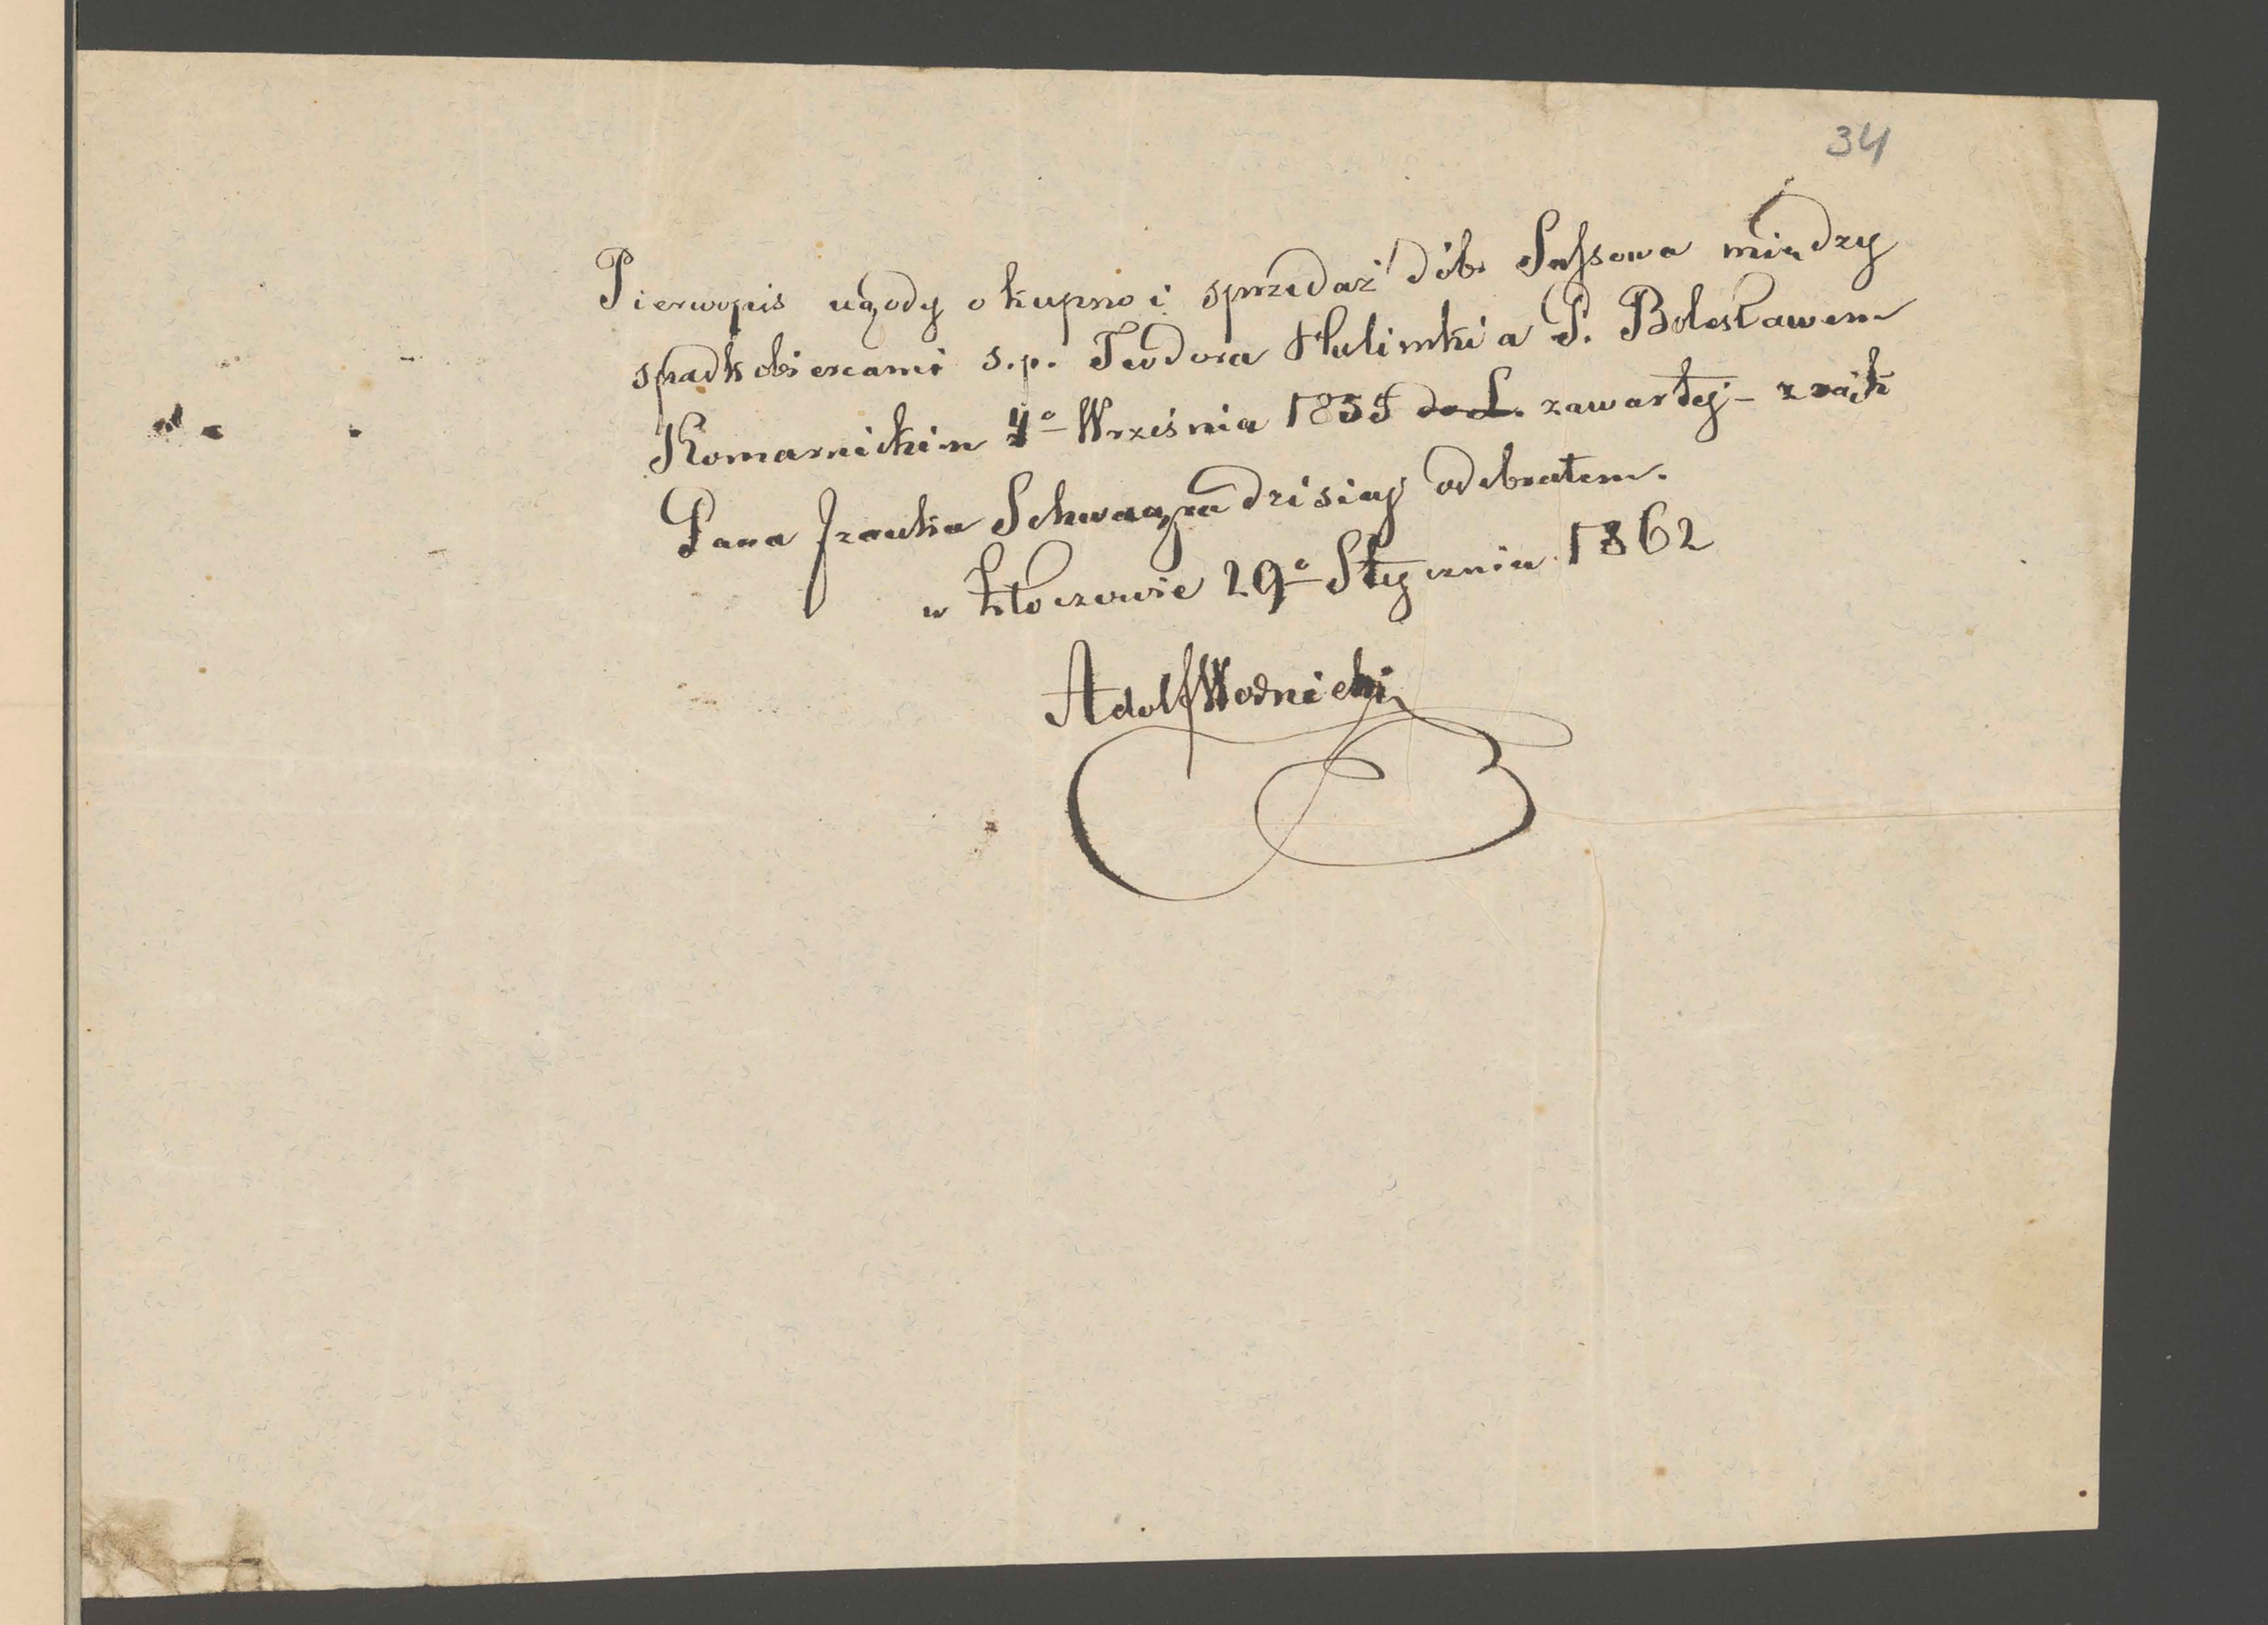 34
Pierwopis ugody o kupno i sprzedaż dób Sassowa między
spadkobiercami s.p. Teodora Hulimki a P. Bolesławem
Komarnickim 4º Września 1859 zawartej – z rąk
Pana Franka Schwagra dzisiaj odebrałem.
w Złoczowie 29º Stycznia 1862
Adolf Woźnicki